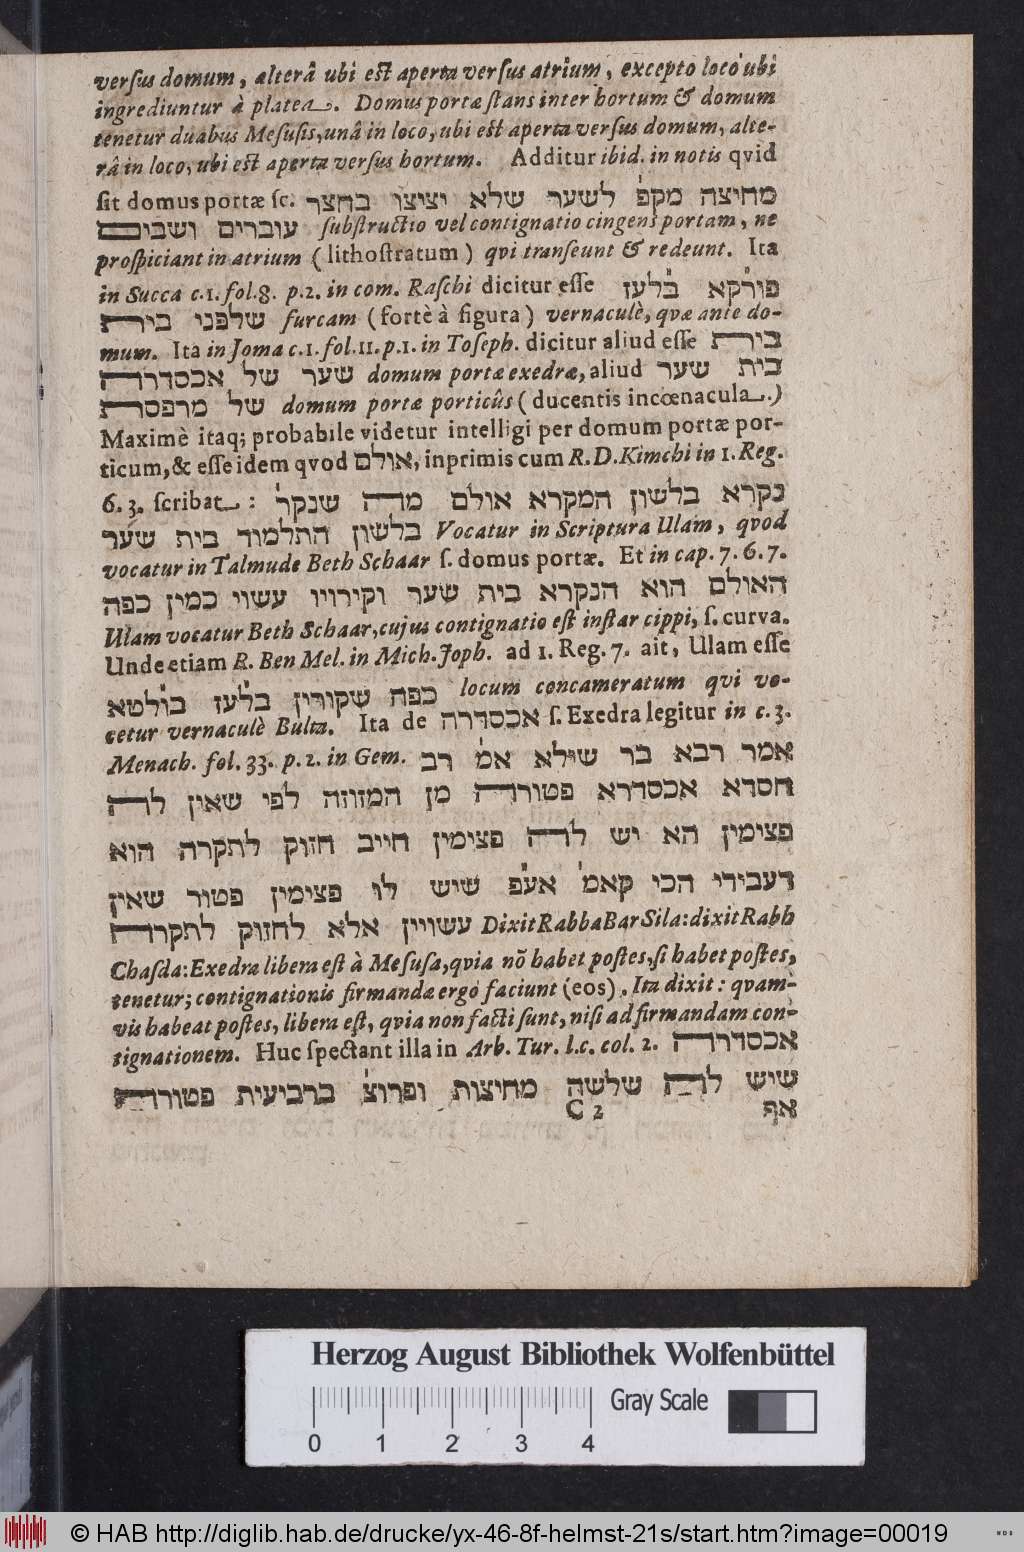 versus domum, alterâ ubi est aperta versus atrium, excepto loco ubi
ingrediuntur à platea. Domus portæ stans inter hortum & domum
tenetur duabus Mesusis, unâ in loco, ubi est aperta versus domum, alte-
râ in loco, ubi est aperta versus hortum. Additur ibid. in notis qvid
sit domus portæ sc. מחיצה מקפ׳ לשער שלא יציצו בחצר
עוברים ושבים substructio vel contignatio cingens portam, ne
prospiciant in atrium (lithostratum) qvi transeunt & redeunt. Ita
in Succa c.1. fol.8. p.2. in com. Raschi dicitur esse פורקא בלעז
שלפני בית furcam (fortè à figura) vernaculè, qvæ ante do-
mum. Ita in Joma c.1. fol.11. p.1. in Toseph. dicitur aliud esse בית
שער של אכסדרה domum portæ exedræ, aliud בית שער
של מרפסת domum portæ porticûs (ducentis incœnacula.)
Maximè itaq; probabile videtur intelligi per domum portæ por-
ticum, & esse idem qvod אולם, inprimis cum R. D. Kimchi in 1. Reg.
6. 3. scribat: נקרא בלשון המקרא אולם מדה שנקר׳
בלשון התלמוד בית שער Vocatur in Scriptura Ulam, qvod
vocatur in Talmude Beth Schaar s. domus portæ. Et in cap. 7. 6. 7.
האולם הוא הנקרא בית שער וקירויו עשוי כמין כפה
Ulam vocatur Beth Schaar, cujus contignatio est instar cippi, s. curva.
Unde etiam R. Ben Mel. in Mich. Joph. ad 1. Reg. 7. ait, Ulam esse
כפה שקורין בלעז בולטא locum concameratum qvi vo-
cetur vernaculè Bulta. Ita de אכסדרה s. Exedra legitur in c. 3.
Menach. fol. 33. p. 2. in Gem. אמר רבא בר שילא אמ׳ רב
חסדא אכסדרא פטורה מן המזוזה לפי שאין לה
פצימין הא יש לה פצימין חייב חזוק לתקרה הוא
דעבידי הכי קאמ׳ אע״פ שיש לו פצימין פטור שאין
עשויין אלא לחזוק לתקרה Dixit Rabba Bar Sila: dixit Rabb
Chasda: Exedra libera est à Mesusa, qvia nõ habet postes, si habet postes,
tenetur; contignationis firmandæ ergo faciunt (eos). Ita dixit: qvam-
vis habeat postes, libera est, qvia non facti sunt, nisi ad firmandam con-
tignationem. Huc spectant illa in Arb. Tur. l.c. col. 2. אכסדרה
שיש לה שלשה מחיצות ופרוצ׳ ברביעית פטורה
C 2 אף
Herzog August Bibliothek Wolfenbüttel
Gray Scale
0 1 2 3 4
© HAB http://diglib.hab.de/drucke/yx-46-8f-helmst-21s/start.htm?image=00019